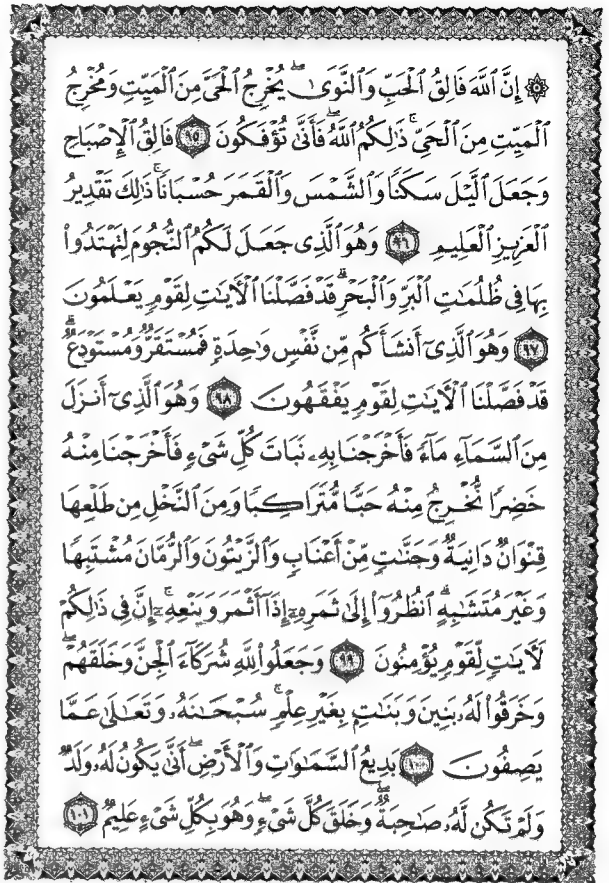 ۞ إِنَّ ٱللَّهَ فَالِقُ ٱلْحَبِّ وَٱلنَّوَىٰ ۖ يُخْرِجُ ٱلْحَىَّ مِنَ ٱلْمَيِّتِ وَمُخْرِجُ
ٱلْمَيِّتِ مِنَ ٱلْحَىِّ ۚ ذَٰلِكُمُ ٱللَّهُ ۖ فَأَنَّىٰ تُؤْفَكُونَ ٩٥ فَالِقُ ٱلْإِصْبَاحِ
وَجَعَلَ ٱلَّيْلَ سَكَنًا وَٱلشَّمْسَ وَٱلْقَمَرَ حُسْبَانًا ۚ ذَٰلِكَ تَقْدِيرُ
ٱلْعَزِيزِ ٱلْعَلِيمِ ٩٦ وَهُوَ ٱلَّذِى جَعَلَ لَكُمُ ٱلنُّجُومَ لِتَهْتَدُوا۟
بِهَا فِى ظُلُمَٰتِ ٱلْبَرِّ وَٱلْبَحْرِ ۗ قَدْ فَصَّلْنَا ٱلْـَٔايَٰتِ لِقَوْمٍ يَعْلَمُونَ
٩٧ وَهُوَ ٱلَّذِىٓ أَنشَأَكُم مِّن نَّفْسٍ وَٰحِدَةٍ فَمُسْتَقَرٌّ وَمُسْتَوْدَعٌ ۗ
قَدْ فَصَّلْنَا ٱلْـَٔايَٰتِ لِقَوْمٍ يَفْقَهُونَ ٩٨ وَهُوَ ٱلَّذِىٓ أَنزَلَ
مِنَ ٱلسَّمَآءِ مَآءً فَأَخْرَجْنَا بِهِۦ نَبَاتَ كُلِّ شَىْءٍ فَأَخْرَجْنَا مِنْهُ
خَضِرًا نُّخْرِجُ مِنْهُ حَبًّا مُّتَرَاكِبًا وَمِنَ ٱلنَّخْلِ مِن طَلْعِهَا
قِنْوَانٌ دَانِيَةٌ وَجَنَّٰتٍ مِّنْ أَعْنَابٍ وَٱلزَّيْتُونَ وَٱلرُّمَّانَ مُشْتَبِهًا
وَغَيْرَ مُتَشَٰبِهٍ ۗ ٱنظُرُوٓا۟ إِلَىٰ ثَمَرِهِۦٓ إِذَآ أَثْمَرَ وَيَنْعِهِۦٓ ۚ إِنَّ فِى ذَٰلِكُمْ
لَـَٔايَٰتٍ لِّقَوْمٍ يُؤْمِنُونَ ٩٩ وَجَعَلُوا۟ لِلَّهِ شُرَكَآءَ ٱلْجِنَّ وَخَلَقَهُمْ ۖ
وَخَرَقُوا۟ لَهُۥ بَنِينَ وَبَنَٰتٍۭ بِغَيْرِ عِلْمٍ ۚ سُبْحَٰنَهُۥ وَتَعَٰلَىٰ عَمَّا
يَصِفُونَ ١٠٠ بَدِيعُ ٱلسَّمَٰوَٰتِ وَٱلْأَرْضِ ۖ أَنَّىٰ يَكُونُ لَهُۥ وَلَدٌ
وَلَمْ تَكُن لَّهُۥ صَٰحِبَةٌ ۖ وَخَلَقَ كُلَّ شَىْءٍ ۖ وَهُوَ بِكُلِّ شَىْءٍ عَلِيمٌ ١٠١